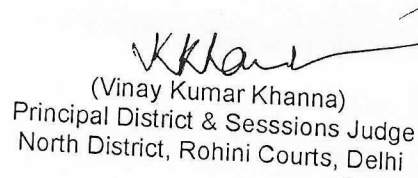 (Vinay Kumar Khanna)
Principal District & Sesssions Judge
North District, Rohini Courts, Delhi